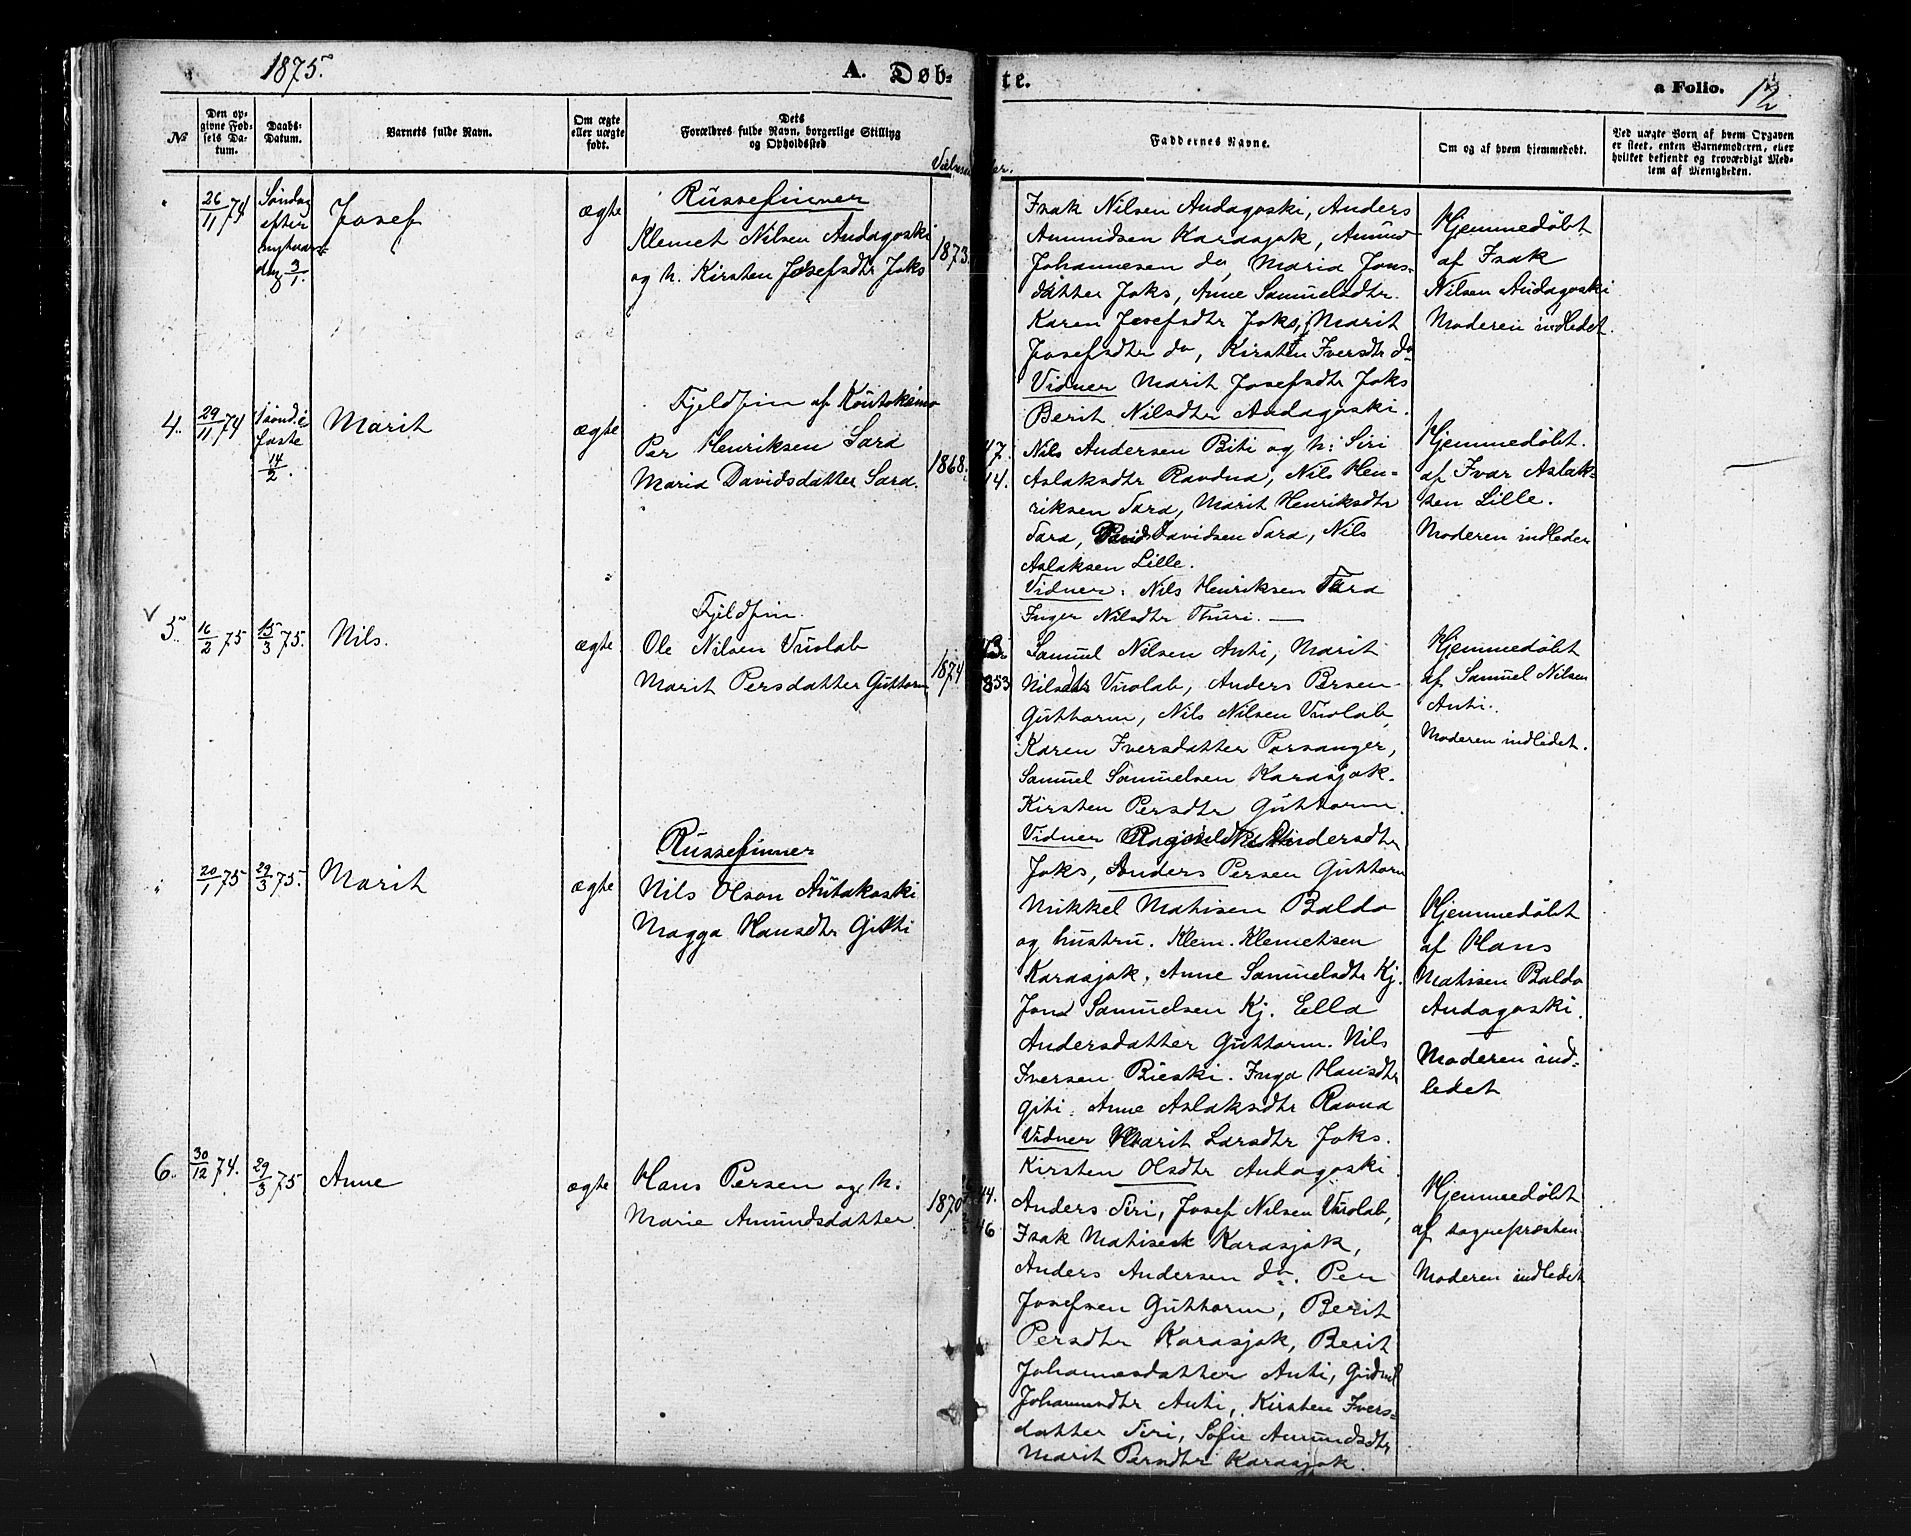 1875.
A. Døb-
te.
a Folio. 12
№
Den op-
givne Fød-
sels Da-
tum.
Daabs-
Datum.
Barnets fulde Navn.
Om ægte
eller uægte
født.
Dets
Forældres fulde Navn, borgerlige Stilling
og Opholdssted
Faddernes Navne.
Om og af hvem hjemmedøbt.
Ved uægte Børn af hvem Opgaven
er skeet, enten Barnemoderen, eller
hvilket bekjendt og troværdigt Med-
lem af Menigheden.
"
26/11 74
Søndag
efter
nytaars-
dag 3/1.
Josef
ægte
Russefinner
Klemet Nilsen Andagoski
og h. Kirsten Josefsdtr Joks
1873.
Isak Nilsen Audagoski, Anders
Amundsen Karasjok, Amund
Johannesen do, Maria Jons-
datter Joks, Anne Samuelsdtr.
Karen Josefsdtr Joks, Marit
Josefsdtr do, Kirsten Iversdtr do
Vidner Marit Josefsdtr Joks
Berit Nilsdtr Audagoski.
Hjemmedøbt
af Isak
Nilsen Audagoski
Moderen indledet.
4.
29/11 74
1 sønd. i
faste
14/2.
Marit
ægte
Fjeldfin af Koutokeino
Per Henriksen Sara
Maria Davidsdatter Sara.
1868.
47.
44.
Nils Andersen Biti og h: Siri
Aslaksdtr Ravdna, Nils Hen-
riksen Sara, Marit Henriksdtr
Sara, Davidsen Sara, Nils
Aslaksen Lille.
Vidner: Nils Henriksen Sara
Inger Nilsdtr Thuri. —
Hjemmedøbt.
af Ivar Aslak-
sen Lille.
Moderen indleder
V
5.
16/2 75
15/3 75.
Nils.
ægte
Fjeldfin.
Ole Nilsen Vuolab
Marit Persdatter Guttorm
1874
1853
Samuel Nilsen Anti, Marit
Nilsdtr Vuolab, Anders Persen
Guttorm, Nils Nilsen Vuolab,
Karen Iversdatter Porsanger,
Samuel Samuelsen Karasjok.
Kirsten Persdtr Guttorm.
Vidner Andersdtr
Joks, Anders Persen Guttorm
Hjemmedøbt
af Samuel Nilsen
Anti.
Moderen indledet.
"
20/1 75
29/3 75.
Marit
ægte
Russefinner
Nils Olsen Autakoski
Magga Hansdtr Gitti
Mikkel Mathisen Baldo
og hustru. Klem. Klemetsen
Karasjok, Anne Samuelsdtr Kj.
Jon Samuelsen Kj. Ella
Andersdatter Guttorm. Nils
Iversen Bieski. Inga Hansdtr
Giti. Anne Aslaksdtr Ravna
Vidner Marit Larsdtr Joks.
Kirsten Olsdtr Andagoski.
Hjemmedøbt
af Hans
Mathisen Baldo
Audagoski.
Moderen ind-
ledet
6.
30/12 74.
29/3 75
Anne
ægte
Hans Persen og h.
Marie Amundsdatter.
1870
44.
46
Anders Siri, Josef Nilsen Vuolab,
Isak Mathisen Karasjok,
Anders Andersen do. Per
Josefsen Guttorm, Berit
Persdtr Karasjok, Berit
Johannesdatter Anti, Gudrid
Johannesdtr Anti, Kirsten Ivers-
datter Siri, Sofie Amundsdtr
Marit Persdtr Karasjok.
Hjemmedøbt
af sognepræsten
Moderen indledet